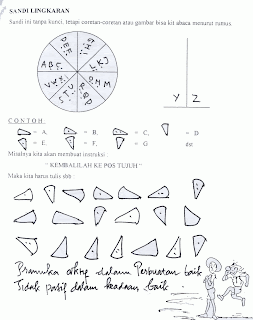 SANDI LINGKARAN
Sandi ini tanpa kunci, tetapi coretan-coretan atau gambar bisa kit abaca menurut rumus.
ABC
DEF
GHI
LKJ
VWX
STU
Y Z
CONTOH
= A = B, = C, = D
= E, = F, = G dst
Misalnya kita akan membuat instruksi :
" KEMBALILAH KE POS TUJUH "
Maka kita harus tulis sbb :
Pramuka aktif dalam Perbuatan baik
Tidak pasif dalam keadaan baik.